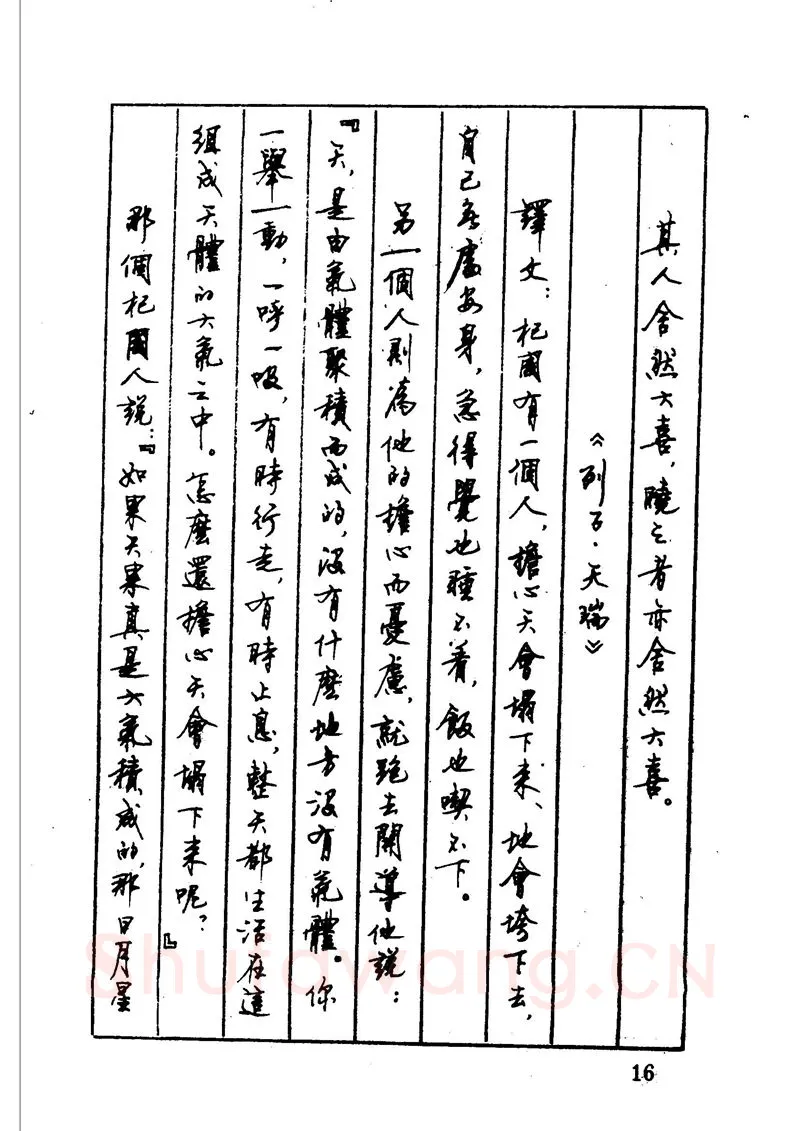 其人舍然大喜，曉之者亦舍然大喜。
《列子·天瑞》
譯文：杞國有一個人，擔心天會塌下來、地會垮下去，
自己無處安身，急得覺也睡不着，飯也喫不下。
另一個人則為他的擔心而憂慮，就跑去開導他説：
『天，是由氣體聚積而成的，沒有什麼地方沒有氣體。你
一舉一動，一呼一吸，有時行走，有時止息，整天都生活在這
組成天體的大氣之中。怎麼還擔心天會塌下來呢？』
那個杞國人説：『如果天果真是大氣積成的，那日月星
16
Shufawang.CN